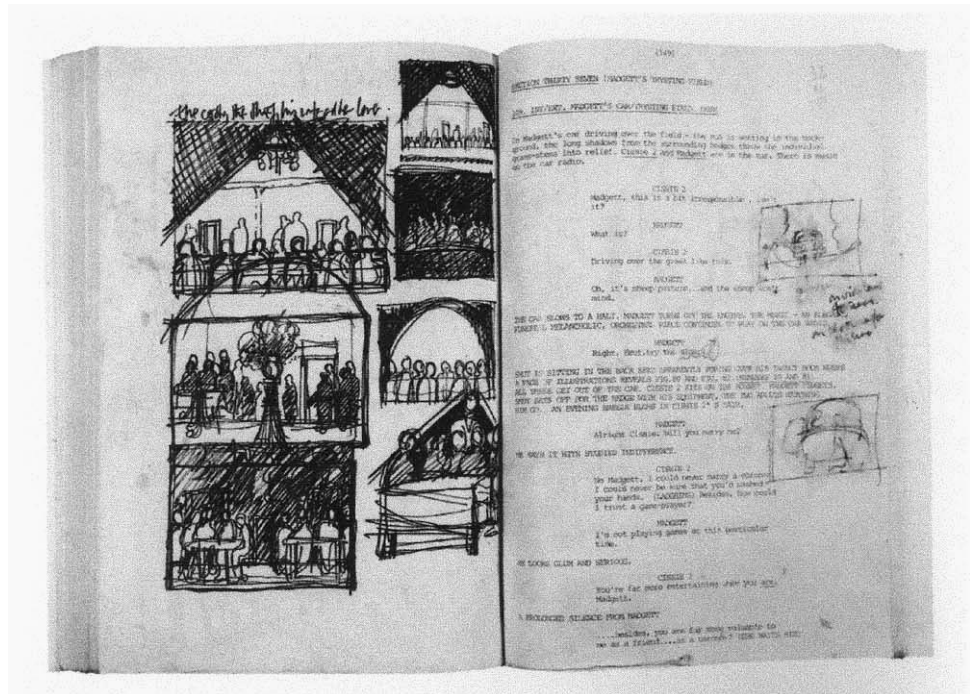 the cook, the thief, his wife & her love
(349)
SECTION THIRTY SEVEN (MADGETT'S
INT/EXT. MADGETT'S CAR/
In Madgett's car driving over the field - the sun is setting in the back-
ground, the long shadows from the surrounding hedges throw the individual
into relief. Cissie 2 and Madgett are in the car. There is music
on the car radio.
CISSIE 2
Madgett, this is a bit irresponsible, isn't
it?
MADGETT
What is?
CISSIE 2
Driving over the grass like this.
MADGETT
Oh, it's sheep pasture...and the sheep won't
mind.
THE CAR SLOWS TO A HALT. MADGETT TURNS OFF THE ENGINE. THE MUSIC - AN
MELANCHOLIC, ORCHESTRAL PIECE CONTINUES TO PLAY ON THE CAR RADIO.
MADGETT
Right, Smut, try the
SMUT IS SITTING IN THE BACK SEAT APPARENTLY PORING OVER HIS
A PAGE OF ILLUSTRATIONS REVEALS
ALL THREE GET OUT OF THE CAR. CISSIE 2 SITS ON THE
SMUT SETS OFF FOR THE HEDGE WITH HIS EQUIPMENT,
AN EVENING BREEZE BLOWS IN CISSIE 2'S HAIR.
MADGETT
Alright Cissie, will you marry me?
HE SAYS IT WITH STUDIED INDIFFERENCE.
CISSIE 2
No Madgett, I could never marry a coroner
I could never be sure that you'd washed
your hands. (LAUGHING) Besides, how could
I trust a game-player?
MADGETT
I'm not playing games at this particular
time.
HE LOOKS GLUM AND SERIOUS.
CISSIE 2
You're far more entertaining when you are,
Madgett.
A PROLONGED SILENCE FROM MADGETT
....besides, you are far more valuable to
me as a friend....as a